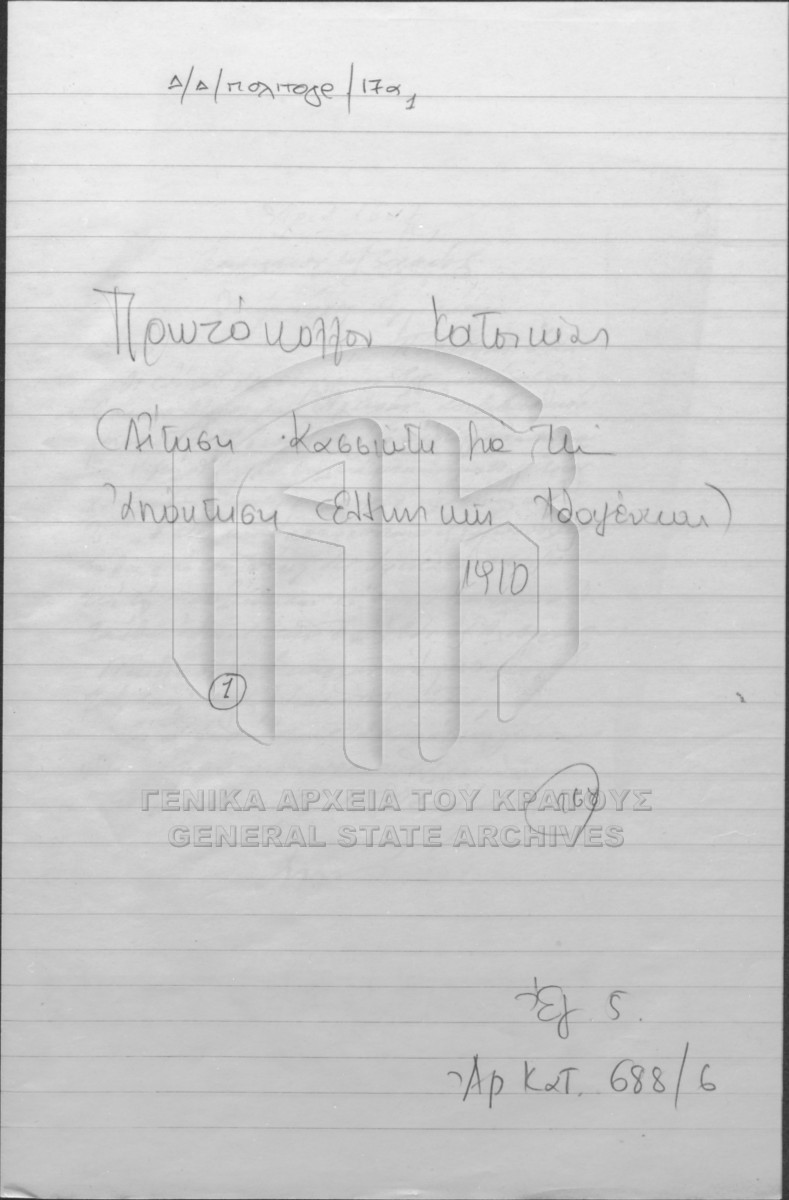 Δ/Δ/πολιτογρ/17α1
Πρωτόκολλον Κατοικίας
(Αίτηση Κασσιώτη για τη
Απόκτηση Ελληνικής Ιθαγένειας)
1910
1
ΓΕΝΙΚΑ ΑΡΧΕΙΑ ΤΟΥ ΚΡΑΤΟΥΣ
GENERAL STATE ARCHIVES
Έγ 5.
Αρ Κατ. 688/6